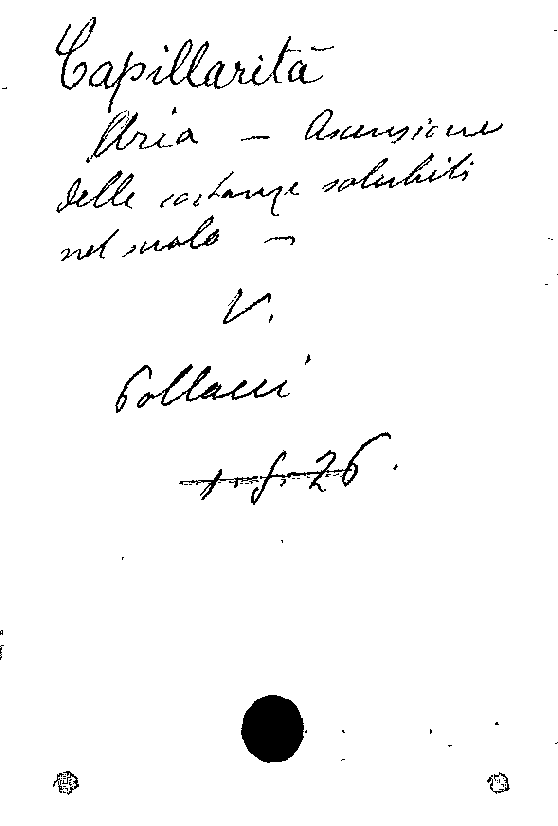 Capillarità
Aria — Ascensione
delle sostanze solubili
nel suolo —
V.
Pollacci
1. g. 26.